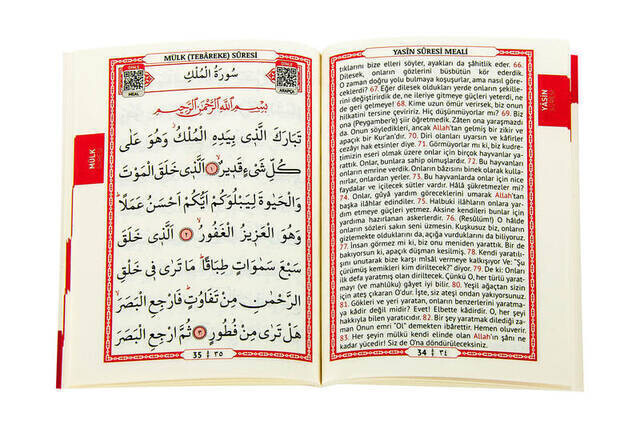 YASİN SÛRESİ MEALİ
tıklarını bize elleri söyler, ayakları da şahitlik eder. 66.
Dilesek, onların gözlerini büsbütün kör ederdik.
O zaman doğru yolu bulmaya koşuşurlar, ama nasıl göre-
ceklerdi? 67. Eğer dilesek oldukları yerde onların şekille-
rini değiştirirdik de, ne ileriye gitmeye güçleri yeterdi, ne
de geri gelmeye! 68. Kime uzun ömür verirsek, biz onun
hilkatini tersine çeviririz. Hiç düşünmüyorlar mı? 69. Biz
ona (Peygamber'e) şiir öğretmedik. Zâten ona yaraşmazdı
da. Onun söyledikleri, ancak Allah'tan gelmiş bir zikir ve
apaçık bir Kur'an'dır. 70. Diri olanları uyarsın ve kâfirler
cezayı hak etsinler diye. 71. Görmüyorlar mı ki, biz kudre-
timizin eseri olmak üzere onlar için birçok hayvanlar ya-
rattık. Onlar, bunlara sahip olmuşlardır. 72. Bu hayvanları
onların emrine verdik. Onların bâzısını binek olarak kulla-
nırlar, onlardan yerler. 73. Bu hayvanlarda onlar için nice
faydalar ve içilecek sütler vardır. Hâlâ şükretmezler mi?
74. Onlar, gûyâ yardım göreceklerini umarak Allah'tan
başka ilâhlar edindiler. 75. Halbuki ilâhların onlara yar-
dım etmeye güçleri yetmez. Aksine kendileri bunlar için
yardıma hazırlanan askerlerdir. 76. (Resûlüm!) O hâlde
onların sözleri sakın seni üzmesin. Kuşkusuz biz, onların
gizlemekte olduklarını da, açığa vurduklarını da biliyoruz.
77. İnsan görmez mi ki, biz onu meniden yarattık. Bir de
bakıyorsun ki, apaçık düşman kesilmiş. 78. Kendi yaratılı-
şını unutarak bize karşı mîsâl vermeye kalkışıyor Ve: "Şu
çürümüş kemikleri kim diriltecek?" diyor. 79. De ki: Onları
ilk defa yaratmış olan diriltecek. Çünkü O, her türlü yarat-
mayı (ve mahlûku) gâyet iyi bilir. 80. Yeşil ağaçtan sizin
için ateş çıkaran O'dur. İşte, siz ateşi ondan yakıyorsunuz.
81. Gökleri ve yeri yaratan, onların benzerlerini yaratma-
ya kâdir değil midir? Evet! Elbette kâdirdir. O, her şeyi
hakkıyla bilen yaratıcıdır. 82. Bir şey yaratmak dilediği za-
man Onun emri "Ol" demekten ibârettir. Hemen oluverir.
83. Her şeyin mülkü kendi elinde olan Allah'ın şânı ne
kadar yücedir! Siz de O'na döndürüleceksiniz.
34 | ٣٤
YÂSİN
MÜLK (TEBÂREKE) SÛRESİ
MEAL
سُورَةُ الْمُلْكِ
بِسْمِ اللّٰهِ الرَّحْمٰنِ الرَّحِيمِ
تَبَارَكَ الَّذٖى بِيَدِهِ الْمُلْكُ وَهُوَ عَلٰى
كُلِّ شَىْءٍ قَدٖيرٌ ١ اَلَّذٖى خَلَقَ الْمَوْتَ
وَالْحَيٰوةَ لِيَبْلُوَكُمْ اَيُّكُمْ اَحْسَنُ عَمَلًا
وَهُوَ الْعَزٖيزُ الْغَفُورُ ٢ اَلَّذٖى خَلَقَ
سَبْعَ سَمٰوَاتٍ طِبَاقًا مَا تَرٰى فٖى خَلْقِ
الرَّحْمٰنِ مِنْ تَفَاوُتٍ فَارْجِعِ الْبَصَرَ
هَلْ تَرٰى مِنْ فُطُورٍ ٣ ثُمَّ ارْجِعِ الْبَصَرَ
35 | ٣٥
MÜLK